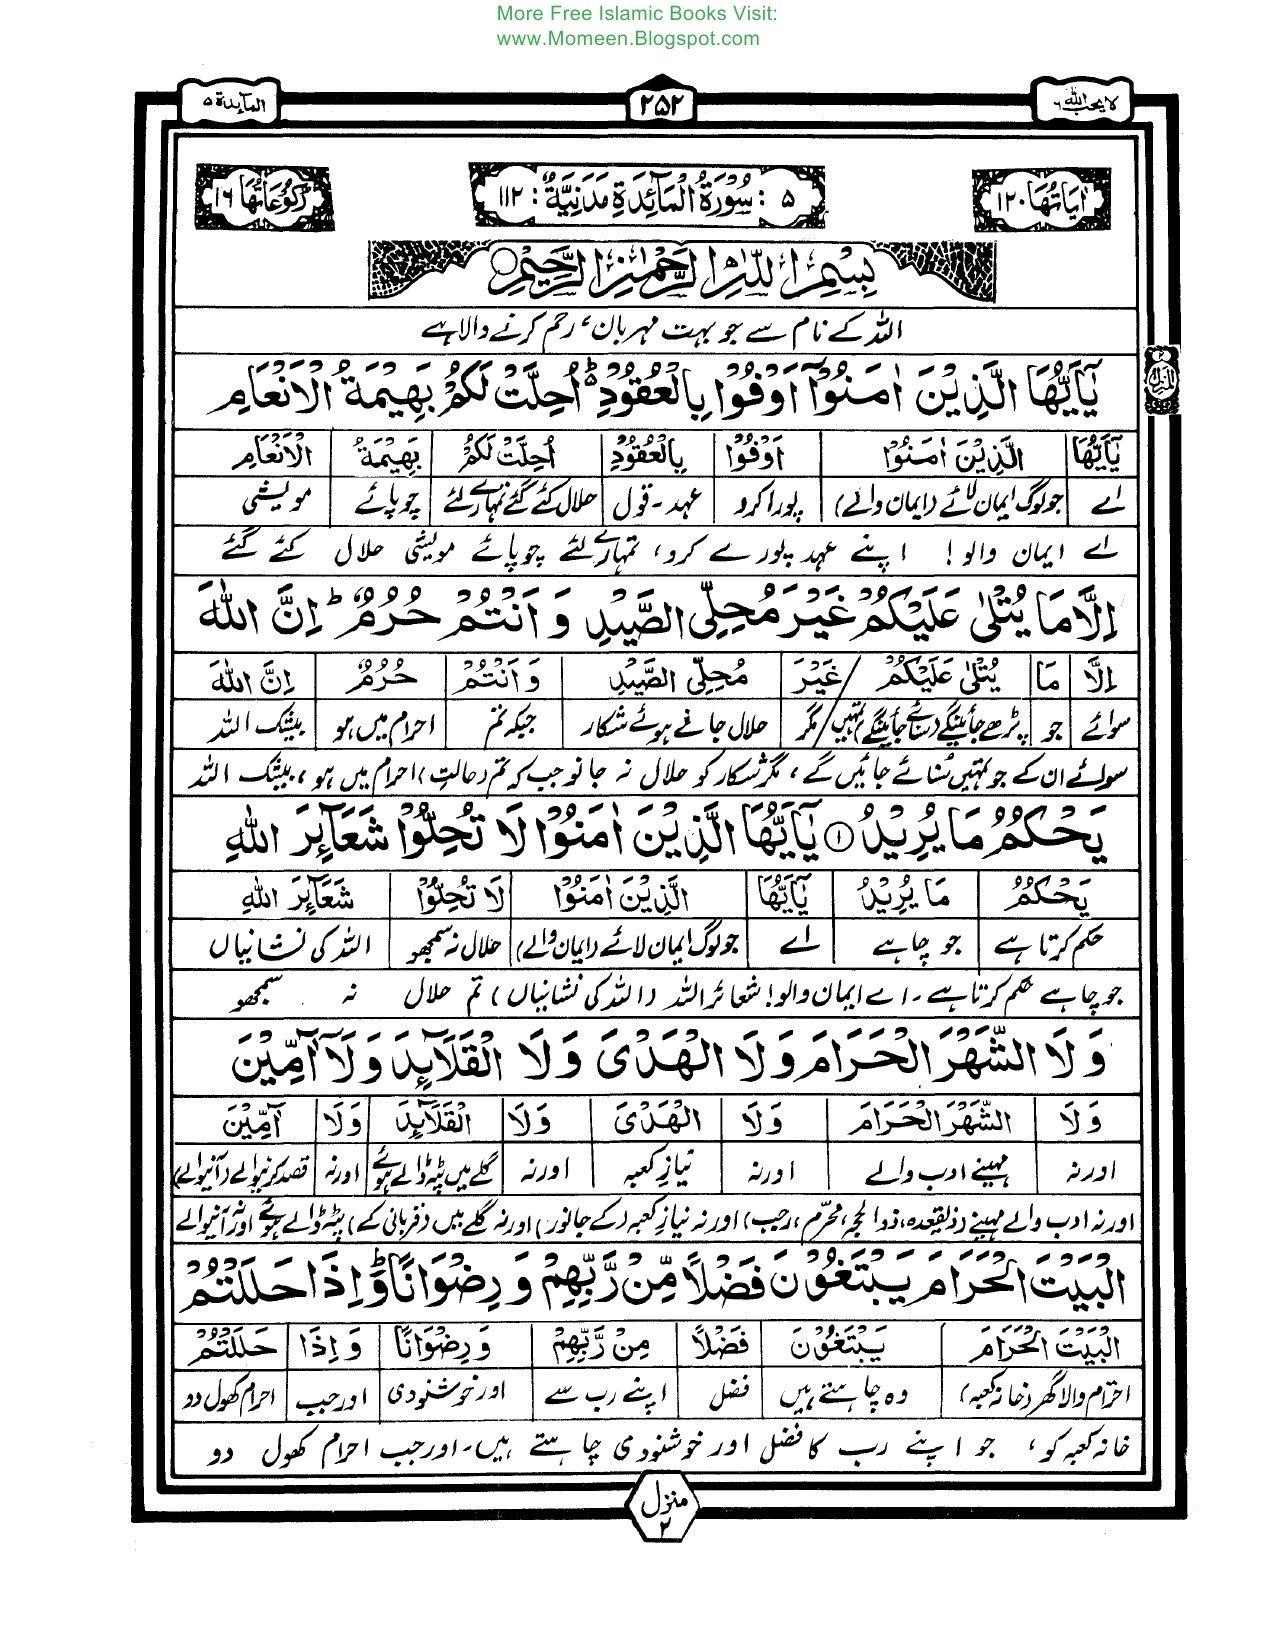 More Free Islamic Books Visit:
www.Momeen.Blogspot.com
لا یحب اللہ ٦ ۲۵۲ المآئدة ۵
اٰیَاتُهَا ۱۲۰ ۵ : سُوْرَةُ الْمَآئِدَةِ مَدَنِیَّةٌ : ۱۱۲ رُكُوْعَاتُهَا ۱٦
بِسْمِ اللّٰهِ الرَّحْمٰنِ الرَّحِیْمِ
اللہ کے نام سے جو بہت مہربان، رحم کرنے والا ہے
یٰۤاَیُّهَا الَّذِیْنَ اٰمَنُوْۤا اَوْفُوْا بِالْعُقُوْدِ ؕ اُحِلَّتْ لَكُمْ بَهِیْمَةُ الْاَنْعَامِ
یٰۤاَیُّهَا الَّذِیْنَ اٰمَنُوْا اَوْفُوْا بِالْعُقُوْدِ اُحِلَّتْ لَكُمْ بَهِیْمَةُ الْاَنْعَامِ
اے جو لوگ ایمان لائے (ایمان والے) پورا کرو عہد - قول حلال کئے گئے تمہارے لئے چوپائے مویشی
اے ایمان والو! اپنے عہد پورے کرو، تمہارے لئے چوپائے مویشی حلال کئے گئے
اِلَّا مَا یُتْلٰى عَلَیْكُمْ غَیْرَ مُحِلِّی الصَّیْدِ وَ اَنْتُمْ حُرُمٌ ؕ اِنَّ اللّٰهَ
اِلَّا مَا یُتْلٰى عَلَیْكُمْ / غَیْرَ مُحِلِّی الصَّیْدِ وَ اَنْتُمْ حُرُمٌ اِنَّ اللّٰهَ
سوائے جو پڑھے جائینگے (سنائے جائینگے) تمہیں / مگر حلال جانے ہوئے شکار جبکہ تم احرام میں ہو بیشک اللہ
سوائے ان کے جو تمہیں سُنائے جائیں گے، مگر شکار کو حلال نہ جانو جب کہ تم (حالتِ) احرام میں ہو، بیشک اللہ
یَحْكُمُ مَا یُرِیْدُ ۱ یٰۤاَیُّهَا الَّذِیْنَ اٰمَنُوْا لَا تُحِلُّوْا شَعَآئِرَ اللّٰهِ
یَحْكُمُ مَا یُرِیْدُ یٰۤاَیُّهَا الَّذِیْنَ اٰمَنُوْا لَا تُحِلُّوْا شَعَآئِرَ اللّٰهِ
حکم کرتا ہے جو چاہے اے جو لوگ ایمان لائے (ایمان والے) حلال نہ سمجھو اللہ کی نشانیاں
جو چاہے حکم کرتا ہے - اے ایمان والو! شعائر اللہ (اللہ کی نشانیاں) تم حلال نہ سمجھو
وَ لَا الشَّهْرَ الْحَرَامَ وَ لَا الْهَدْیَ وَ لَا الْقَلَآئِدَ وَ لَاۤ آٰمِّیْنَ
وَ لَا الشَّهْرَ الْحَرَامَ وَ لَا الْهَدْیَ وَ لَا الْقَلَآئِدَ وَ لَا آٰمِّیْنَ
اور نہ مہینے ادب والے اور نہ نیازِ کعبہ اور نہ گلے میں پٹہ ڈالے ہوئے اور نہ قصد کرنیوالے (آنیوالے)
اور نہ ادب والے مہینے (ذلقعدہ، ذوالحجہ، محرّم، رجب) اور نہ نیازِ کعبہ (کے جانور) اور نہ گلے میں (قربانی کے) پٹے ڈالے ہوئے اور نہ آنیوالے
الْبَیْتَ الْحَرَامَ یَبْتَغُوْنَ فَضْلًا مِّنْ رَّبِّهِمْ وَ رِضْوَانًا ؕ وَ اِذَا حَلَلْتُمْ
الْبَیْتَ الْحَرَامَ یَبْتَغُوْنَ فَضْلًا مِنْ رَّبِّهِمْ وَ رِضْوَانًا وَ اِذَا حَلَلْتُمْ
احترام والا گھر (خانہ کعبہ) وہ چاہتے ہیں فضل اپنے رب سے اور خوشنودی اور جب احرام کھول دو
خانہ کعبہ کو، جو اپنے رب کا فضل اور خوشنودی چاہتے ہیں - اور جب احرام کھول دو
منزل ۲